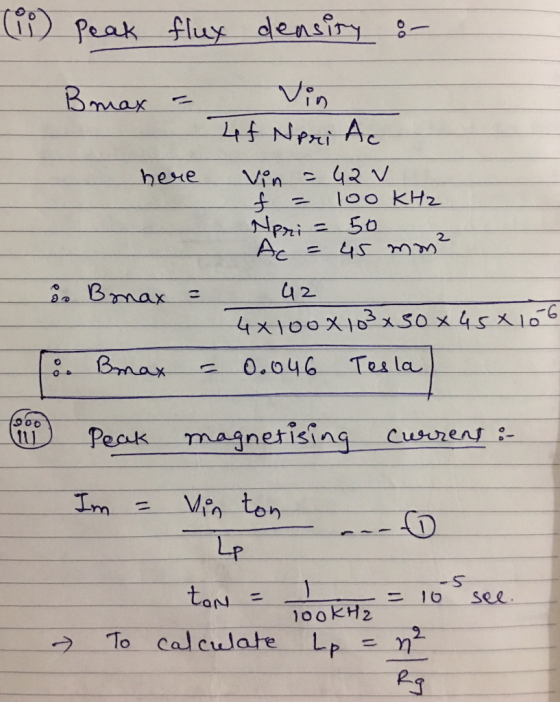 (ii) Peak flux density :-
Bmax = Vin / 4f Npri Ac
here Vin = 42 V
f = 100 KHz
Npri = 50
Ac = 45 mm²
∴ Bmax = 42 / 4×100×10³×50×45×10⁻⁶
∴ Bmax = 0.046 Tesla
(iii) Peak magnetising current :-
Im = Vin ton / Lp ---- ①
toN = 1 / 100KHz = 10⁻⁵ sec.
→ To calculate Lp = η² / Rg